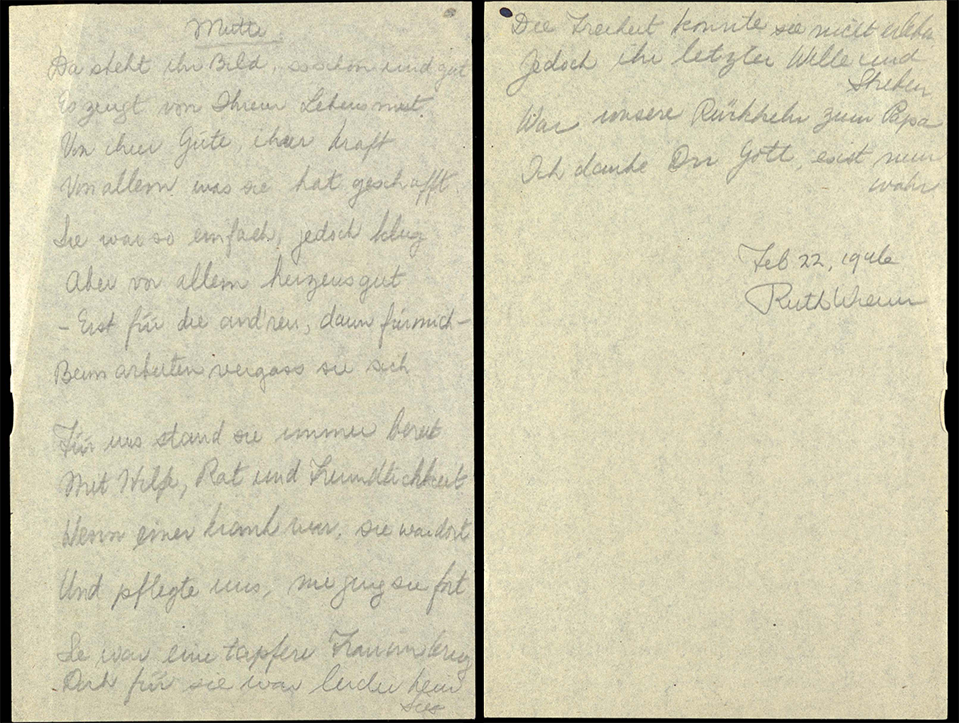 Mutti
Da steht ihr Bild, so schön und gut
Es zeugt von Ihrem Lebensmut.
Von ihrer Güte, ihrer Kraft
Von allem was sie hat geschafft.
Sie war so einfach, jedoch klug
Aber vor allem herzensgut
- Erst für die and'ren, dann für mich -
Beim arbeiten vergass sie sich
Für uns stand sie immer bereit
Mit Hilfe, Rat und Freundlichkeit
Wenn einer krank war, sie war dort
Und pflegte uns, nie ging sie fort
Sie war eine tapfere Frau im Krieg
Doch für sie war leider kein
Sieg
Die Freiheit konnte sie nicht erleben
Jedoch ihr letzter Wille und
Streben
War unsere Rückkehr zum Papa
Ich danke Dir Gott, es ist nun
wahr
Feb 22, 1946
Ruth Wiener